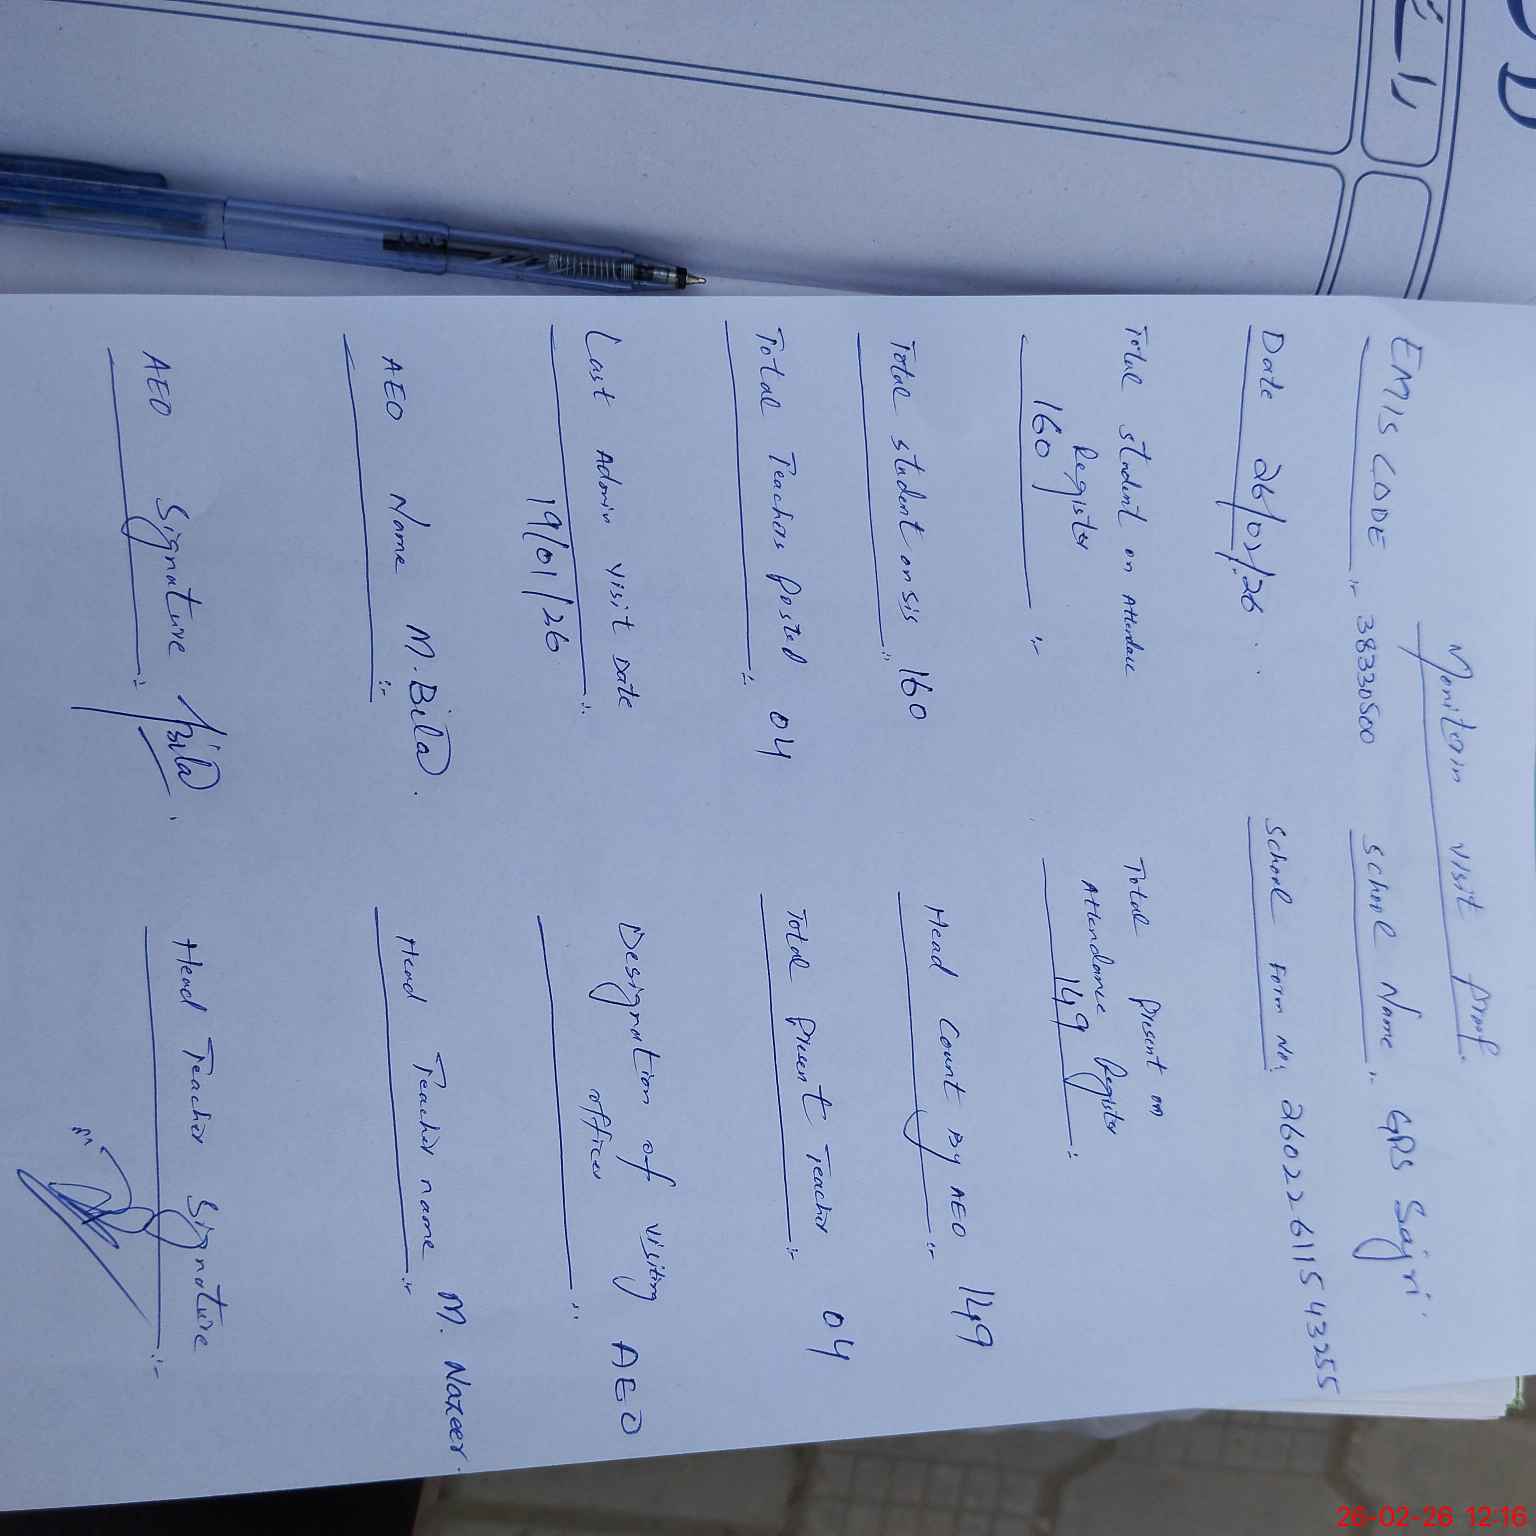 Monitorin visit proof
EMIS CODE :- 38330500 School Name :- GPS Sajri
Date 26/02/26 School Form No: 26022611543255
Total student on Attendace Register :- 160
Total Present on Attendance Register :- 149
Total student on sis :- 160 Head Count By AEO :- 149
Total Teachers Posted :- 04 Total Present Teacher :- 04
Last Admin visit Date :- 19/01/26
Designation of visiting officer :- AEO
AEO Name :- M.Bilal. Head Teacher name :- M. Nazeer.
AEO Signature :- Bilal. Head Teacher Signature :-
26-02-26 12:16